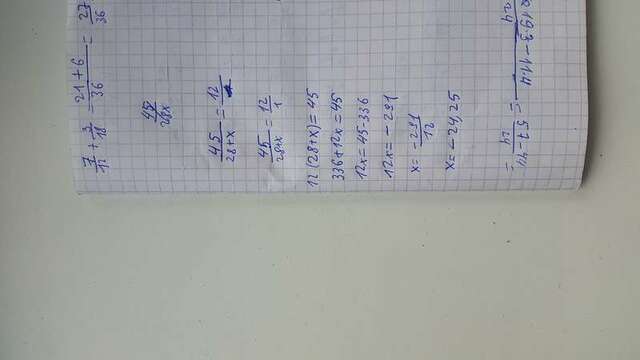 7/12 + 3/18 = 21+6/36 = 27/36
45/28x
45/28+x = 12
45/28+x = 12/1
12(28+x)=45
336+12x=45
12x=45-336
12x=-291
x= -291/12
x=-24,25
19·3-11·4/24 = 57-44/24 =